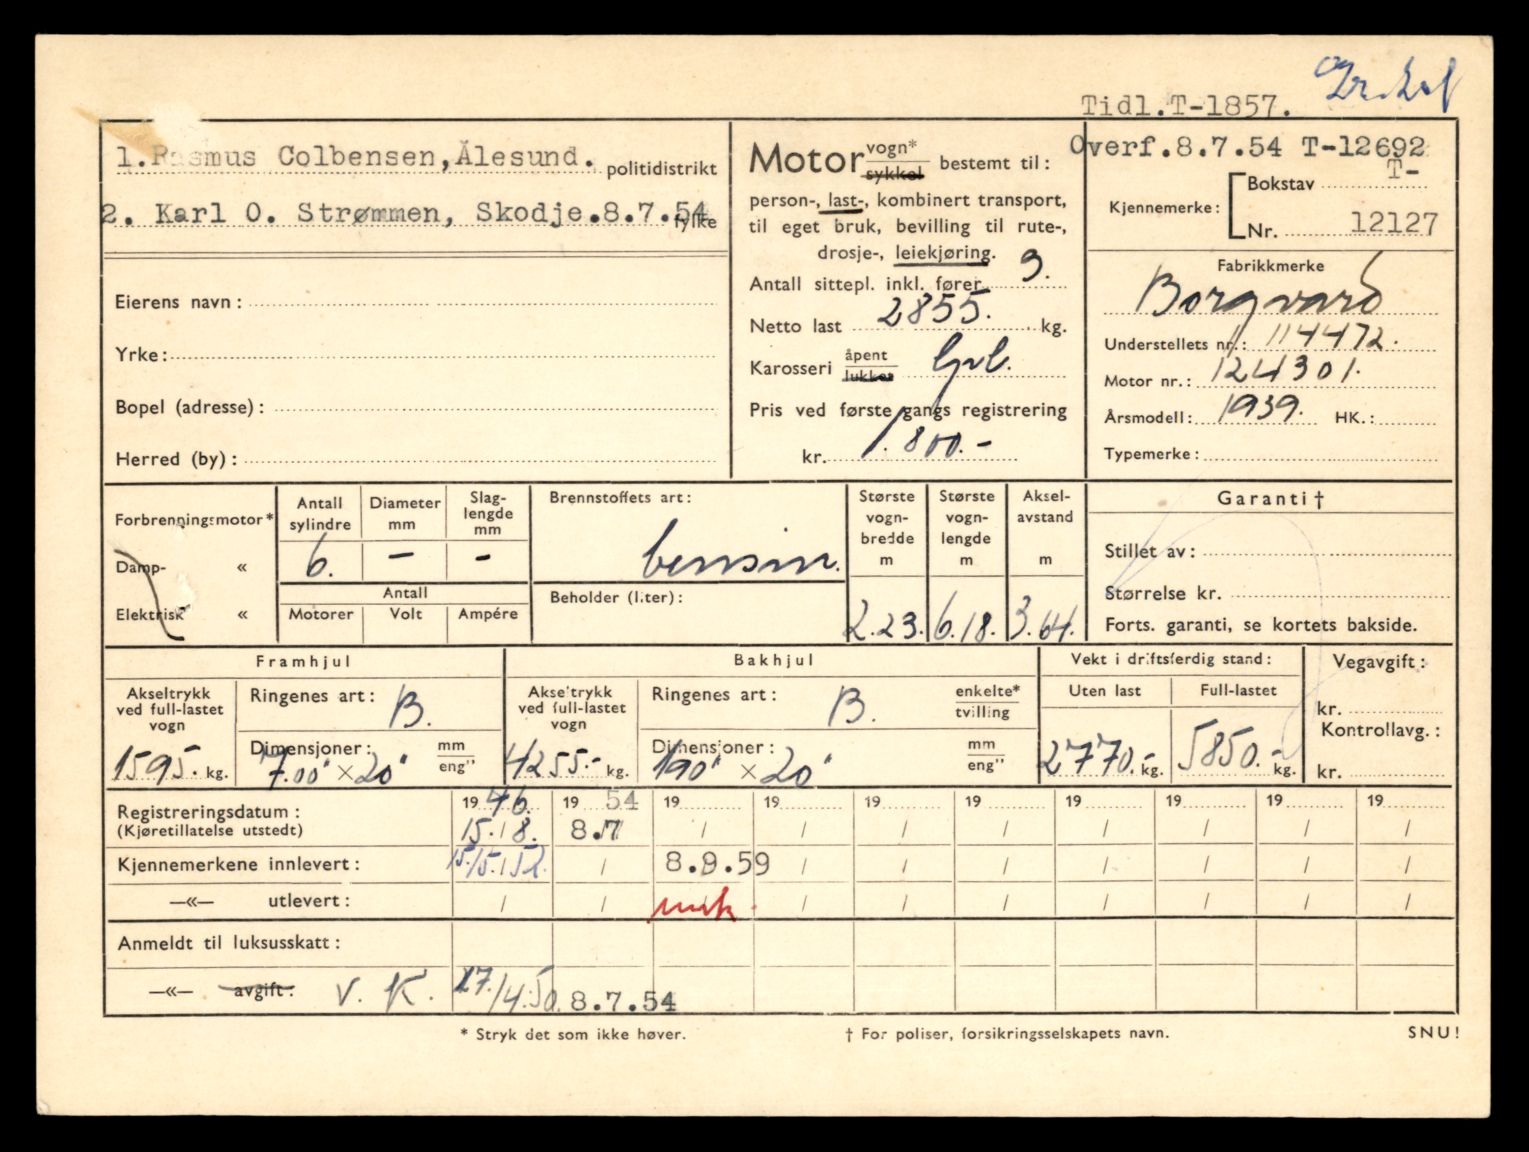 Tidl.T-1857.
1.Rasmus Colbensen, Ålesund. politidistrikt
2. Karl O. Strømmen, Skodje.8.7.54 fylke
Eierens navn:
Yrke:
Bopel (adresse):
Herred (by):
Motor vogn* sykkel bestemt til:
person-, last-, kombinert transport,
til eget bruk, bevilling til rute-,
drosje-, leiekjøring.
Antall sittepl. inkl. fører 3.
Netto last 2855. kg.
Karosseri åpent lukket
Pris ved første gangs registrering
kr. 1.800.-
Overf.8.7.54 T-12692
Kjennemerke: Bokstav T-
Nr. 12127
Fabrikkmerke
Borgvard
Understellets nr.: 114472.
Motor nr.: 124301.
Årsmodell: 1939. HK.:
Typemerke:
Forbrenningsmotor*
Damp- «
Elektrisk «
Antall sylindre Diameter mm Slag-lengde mm
6. - -
Antall
Motorer Volt Ampére
Brennstoffets art:
bensin.
Beholder (liter):
Største vogn-bredde m Største vogn-lengde m Aksel-avstand m
2.23. 6.18. 3.64.
Garanti †
Stillet av:
Størrelse kr.
Forts. garanti, se kortets bakside.
Framhjul
Akseltrykk ved full-lastet vogn
1595. kg.
Ringenes art: B.
Dimensjoner: mm eng"
7.00" × 20"
Bakhjul
Akseltrykk ved full-lastet vogn
4255.- kg.
Ringenes art: B. enkelte* tvilling
Dimensjoner: mm eng"
190" × 20"
Vekt i driftsferdig stand:
Uten last Full-lastet
2770.- kg. 5850.- kg.
Vegavgift:
kr.
Kontrollavg.:
kr.
Registreringsdatum: 19 46. 19 54 19 19 19 19 19 19 19 19
(Kjøretillatelse utstedt) 15./8. 8.7 / / / / / / / /
Kjennemerkene innlevert: 15./5.52. / 8.9.59 / / / / / / /
—«— utlevert: / / / / / / / / /
Anmeldt til luksusskatt:
—«— avgift: V. K. 27./4.50. 8.7.54
* Stryk det som ikke høver. † For poliser, forsikringsselskapets navn. SNU!